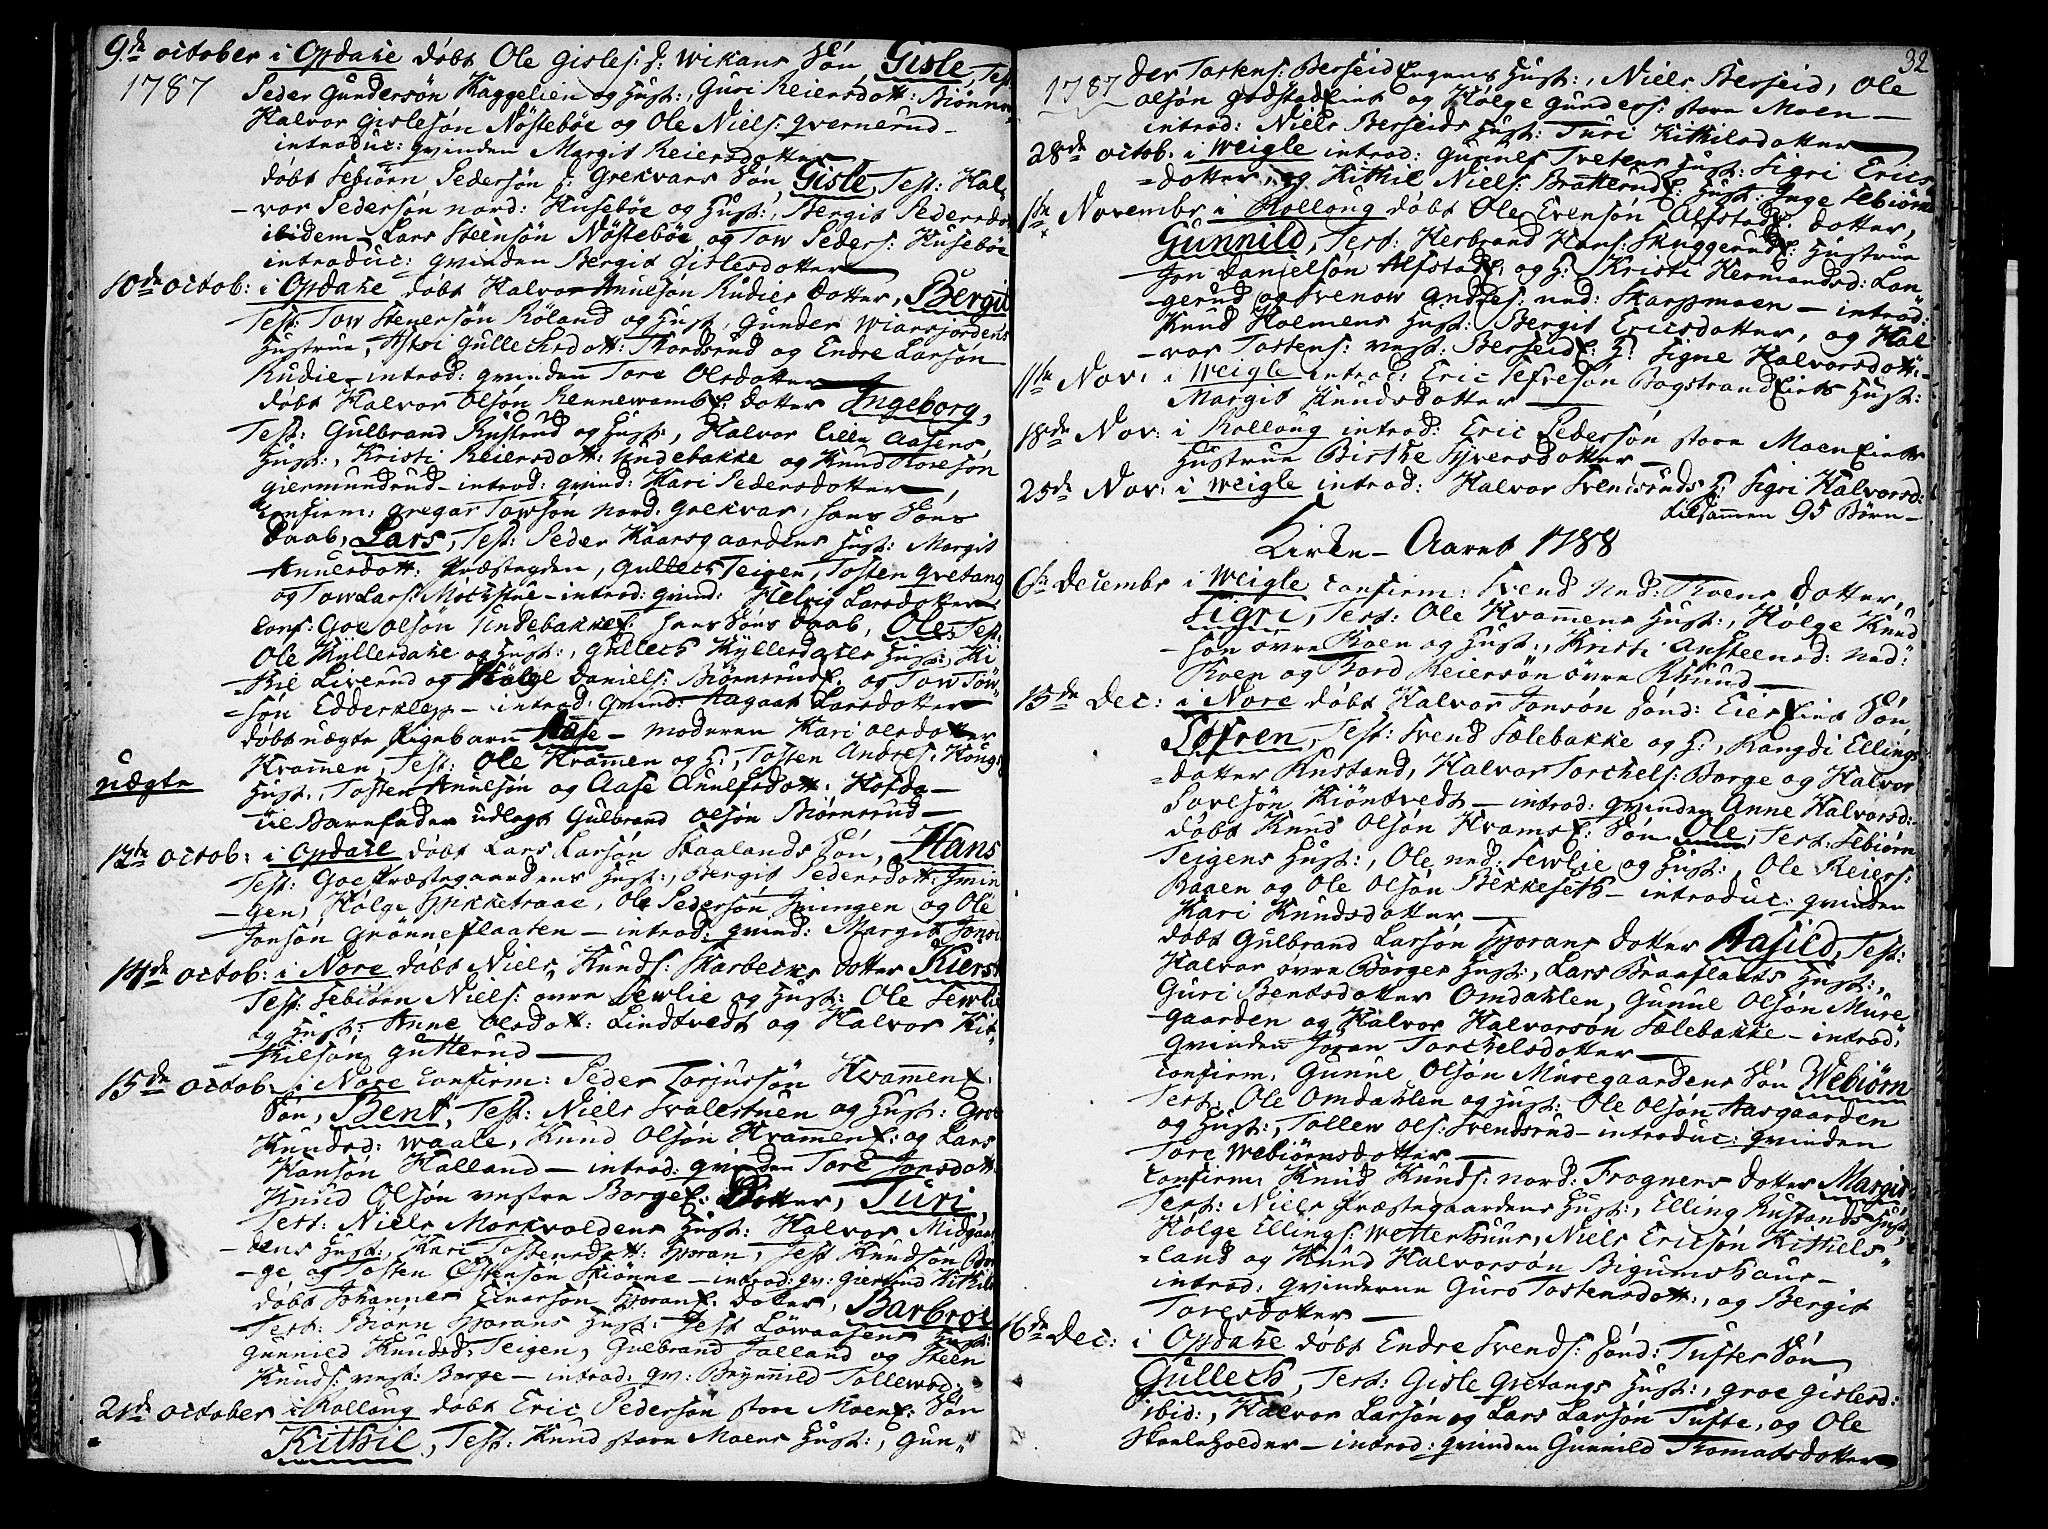 9de october i Opdahl døbt Ole Gisles: f: Wikans Søn Gisle, Test:
1787
Peder Gundersøn Kaggelien og Hust:, Guri Reiersdott: Biønne
Halvor Gislesøn Nøstebøe og Ole Niels: Qvernerud
introduc: qvinden Margit Reiersdotter
døbt Sebiørn Pedersøn Grekvars Søn, Gisle, Test: Hal-
vor Pedersøn nord: Husebøe og Hust:, Bergit Pedersdo
ibidem Lars Steensøn Nøstebøe og Tow Peders: Husebøe
introduc: qvinden Bergit Gislesdotter
10de octob: i Opdahl døbt Halvor Anulsøn Rudies dotter, Bergit
Test: Tow Stenersøn Røland og Hust, Gunder Wiansjordens
Hustrue, Astri Gullechsdott: Skordsrud og Endre Larsøn
Rudie - introd: qvinden Tore Olsdotter
døbt Halvor Olsøn Rennewamb: dotter Ingeborg,
Test: Gulbrand Rustrud og Hust:, Halvor Lille Aasens
Hust:, Kristi Reiersdott: Undebakke og Knud Toresøn
Giermundrud - introd: qvind: Kari Pedersdotter
Confirm: Gregar Towsøn nord: Grekvar, hans Søns
Daab, Lars, Test: Peder Kaarsgaardens Hust: Margit
Anuelsdott: Præstegden, Gullech Teigen, Tosten Qvetang
og Tow Lars: Mochstue - introd: qvind: Helvig Larsdotter
Conf: Goe Olsøn Undebakke: hans Søns daab, Ole, Test:
Ole Hyllerdahl og Hust:, Gullech Hyllerdahls Hust:, Ki-
-kil Liverud og Hølge Daniels: Biørnsrud og Tow Tow-
-søn Edderklep - introd: qvind: Aagaat Larsdotter
døbt uægte Pigebarn Aase - moderen Kari Olsdotter
Kramen, Test: Ole Kramen og H:, Tosten Andres: Kongs
uægte
Hust:, Tosten Anulsøn og Aase Anulfsdott: Hofda
til Barnefader udlagt Gulbrand Olsøn Biørnsrud
12te octob: i Opdahl døbt Lars Larsøn Skaalands Søn, Hans
Test: Goe Præstegaardens Hust:, Bergit Pedersdott: Imin
-gen, Hølge Spikketraae, Ole Pedersøn Imingen og Ole
Jonsøn Grønneflaaten - introd: qvind: Margit Jonsd
14de octob: i Nore døbt Niels Knuds: Skarbecks dotter Kierst
Test: Sebiørn Niels: øvre Sewlie og Hust: Ole Sewlie
og Hust: Anne Olsdott: Lindtvedt og Halvor Kit-
-kilsøn Gutterud
15de octob: i Nore Confirm: Peder Torjussøn Kramen
Søn, Bent, Test: Niels Fvalestuen og Hust: Groe
Knudsd: Waale, Knud Olsøn Kramen: og Lars
Hansøn Halland - introd: qvinden Tore Jonsdott:
Knud Olsøn vestre Borge: Dotter, Turi,
Test: Niels Morkvoldens Hust: Halvor Midgaar
-dens Hust, Kari Tostensdott: Sporan, Jest Knudsøn Bor
-ge og Tosten Østensøn Skiønne - introd: qv: Giertrud Kitkils
døbt Johannes Einersøn Sporan: dotter, Barbroe
Test: Biørn Sporans Hust: Jest Løwaasens Hust:
Gunnild Knudsd: Teigen, Gulbrand Falland og Steen
Knuds: vest: Borge - introd: qv: Brynnild Tollewsd:
21de october i Rollaug døbt Eric Pedersøn store Moens: Søn
Kithil, Test: Knud store Moens Hust:, Gun-
32
1787
der Tostens: Berseid Engens Hust:, Niels Berseid, Ole
Olsøn Godstad Eiet og Hølge Gunders: store Moen
introd: Niels Berseids Hust: Turi Kithilsdotter
28de octob: i Weigle introd: Gunnes Tvetens Hust: Sigri Erics
-dotter, og Kithil Niels: Bratterud: Hust: Inge Sebiørns
1ste Novembr i Rollaug døbt Ole Evensøn Alfstad: dotter,
Gunnild, Test: Herbrand Hans: Skuggerud: Hustrue
Jon Danielsøn Alfstad: og H: Kristi Hermandsd: Lan-
-gerud og Svenow Andres: ned: Skarpmoen - introd:
Knud Holmens Hust: Bergit Ericsdotter, og Hal-
-vor Tostens: vest: Berseid: H: Signe Halvorsdott:
11te Nov: i Weigle introd: Eric Sefresøn Bogstrand Eiets Hust:
Margit Knudsdotter
18de Nov: i Rollaug introd: Eric Pedersøn store Moen Eiets
Hustrue Birthe Syversdotter
25de Nov: i Weigle introd: Halvor Svendsruds H: Sigri Halvorsd:
tilsammen 95 Børn -
Kirke - Aaret 1788
6te Decembr i Weigle Confirm: Svend ned: Koens dotter,
Sigri, Test: Ole Kramens Hust:, Hølge Knud
-søn øvre Koen og Hust:, Kristi Ansteensd: ned:
Koen og Bord Reiersøn øvre Kjund
15de Dec: i Nore døbt Halvor Jonsøn Sønd: Eier Eiet Søn
Sofren, Test: Svend Sælebakke og H:, Rangdi Ellings
-dotter Rustand, Halvor Torchels: Borge og Halvor
Toresøn Kiøntvedt - introd: qvinden Anne Halvorsd:
døbt Knud Olsøn Krams: Søn Ole, Test: Sebiørn
Teigens Hust:, Ole ned: Sewlie og Hust:, Ole Reiers:
Baaen og Ole Olsøn Bekkeseth - introduc: qvinden
Kari Knudsdotter
døbt Gulbrand Larsøn Sporans dotter Aasild, Test:
Halvor øvre Borges Hust:, Lars Braaflaats Hust:,
Guri Bentsdotter Omdahlen, Gunnul Olsøn Mure
-gaarden og Halvor Halvorsøn Sælebakke - introd:
qvinden Joran Torchelsdotter
Confirm: Gunnul Olsøn Muregaardens Søn Webiørn
Test: Ole Omdahlen og Hust: Ole Olsøn Aasgaarden
og Hust:, Tollew Ols: Svendsrud - introduc: qvinden
Tore Webiørnsdotter
Confirm: Knud Knuds: nord: Frogners dotter Margit
Test: Niels Præstegaardens Hust:, Elling Rustands Hust:
Hølge Ellings: Wetterhuus, Niels Ericsøn Kithels
-land og Knud Halvorsøn Bigumshaus -
introd: qvinderne Guro Tostensdott:, og Bergit
Toresdotter
16de Dec: i Opdahl døbt Endre Svends: Sønd: Tufter Søn
Gullech, Test: Gisle Qvetangs Hust:, Groe Gislesd:
ibid:, Halvor Larsøn og Lars Larsøn Tufte, og Ole
Skoeleholder - introd: qvinden Gunnild Thomasdotter